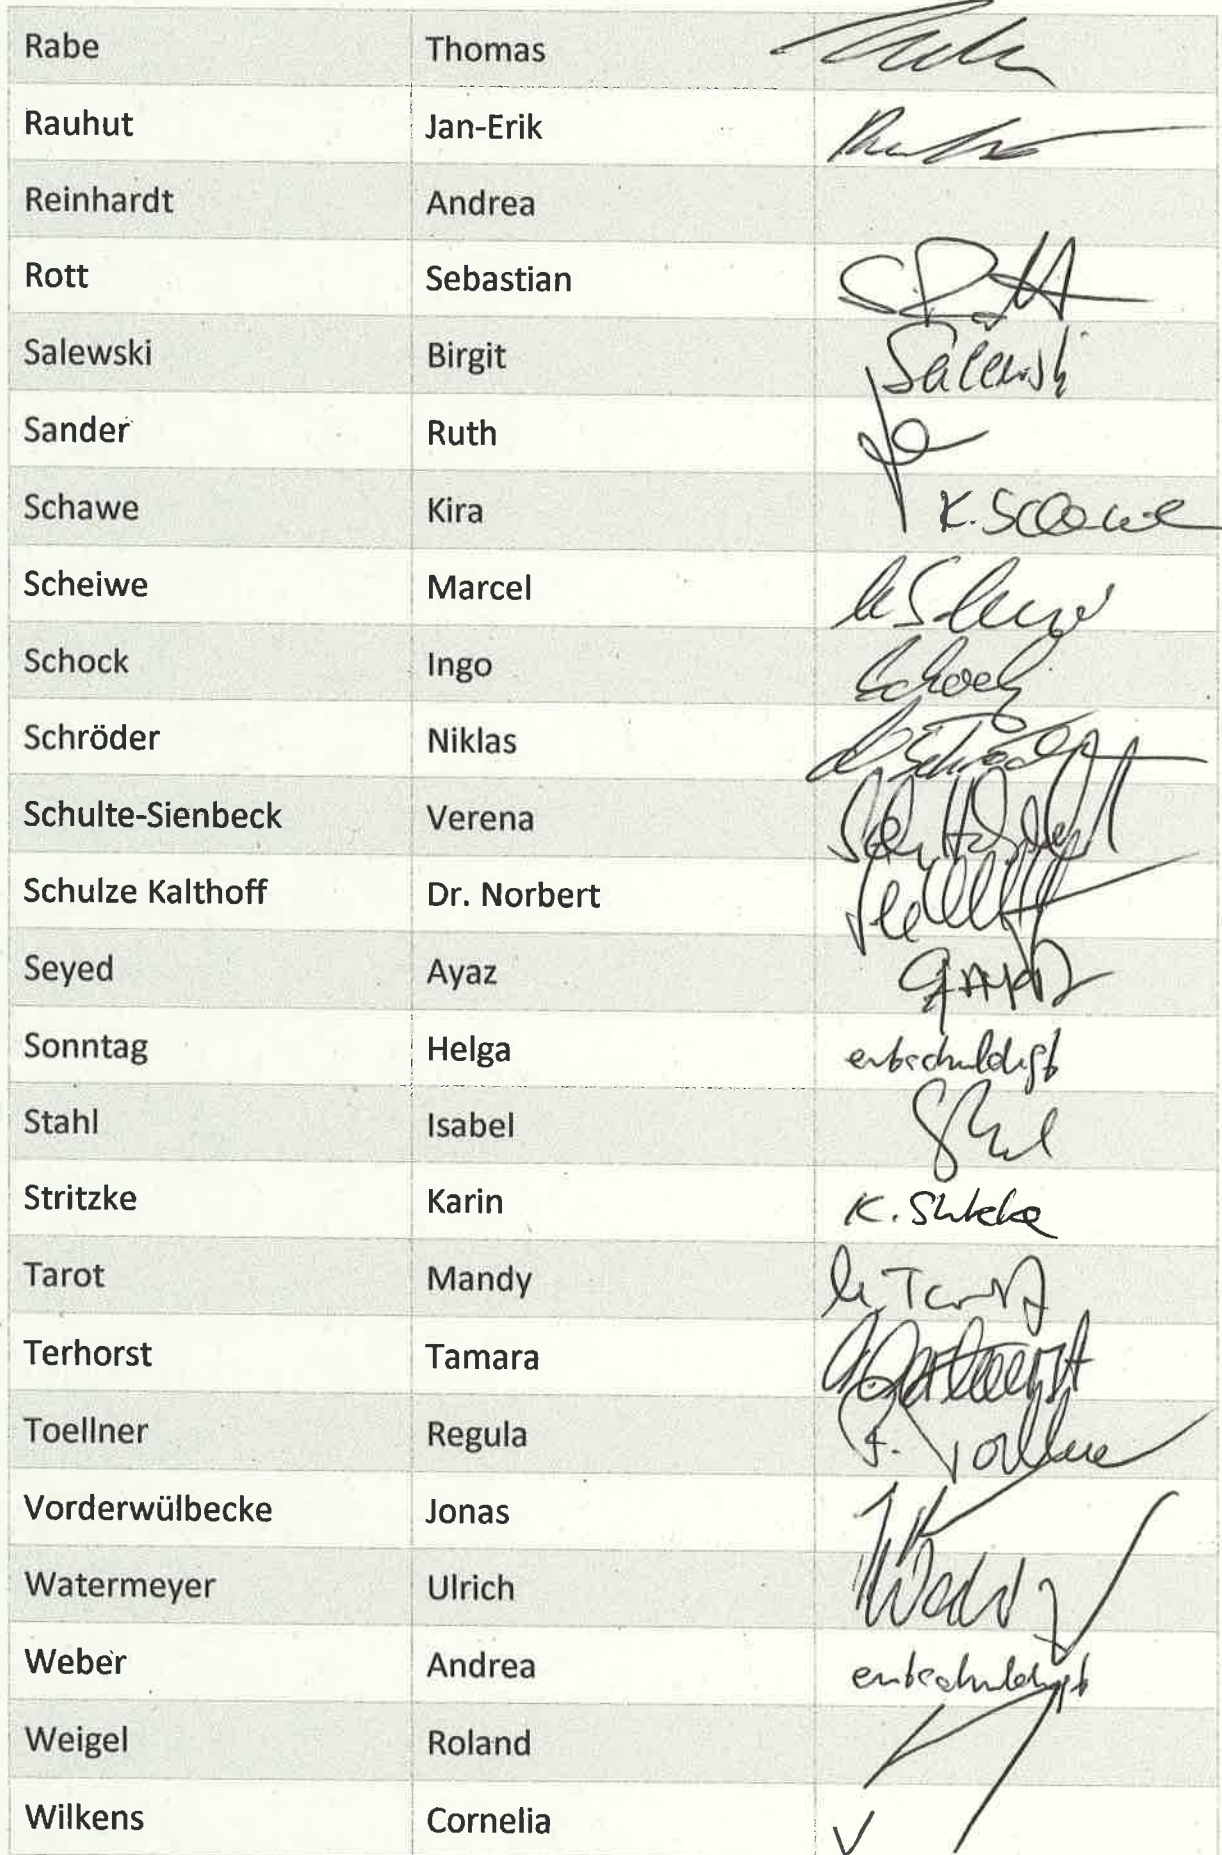 Rabe Thomas
Rauhut Jan-Erik
Reinhardt Andrea
Rott Sebastian
Salewski Birgit Salewski
Sander Ruth
Schawe Kira K. Schawe
Scheiwe Marcel
Schock Ingo Schock
Schröder Niklas N. Schröder
Schulte-Sienbeck Verena
Schulze Kalthoff Dr. Norbert
Seyed Ayaz
Sonntag Helga entschuldigt
Stahl Isabel
Stritzke Karin K. Stritzke
Tarot Mandy M. Tarot
Terhorst Tamara
Toellner Regula
Vorderwülbecke Jonas
Watermeyer Ulrich
Weber Andrea entschuldigt
Weigel Roland
Wilkens Cornelia